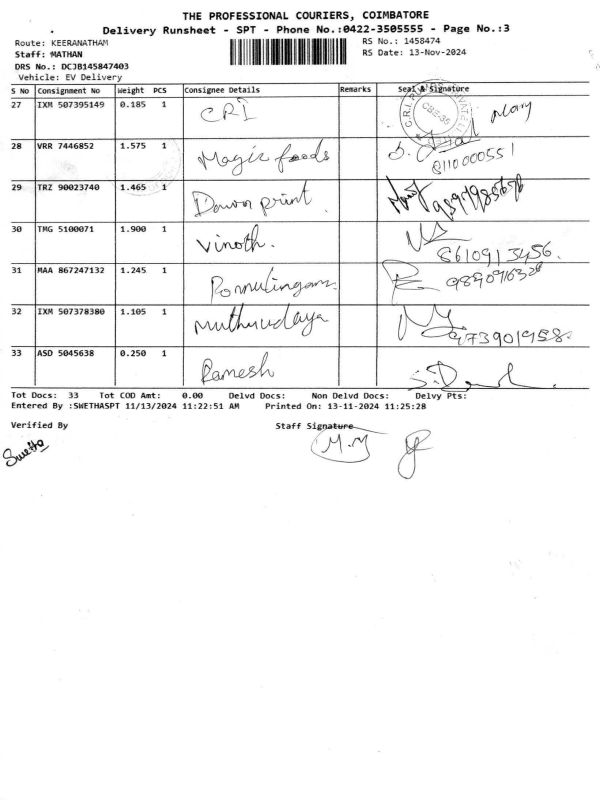 THE PROFESSIONAL COURIERS, COIMBATORE
Delivery Runsheet - SPT - Phone No.:0422-3505555 - Page No.:3
Route: KEERANATHAM
RS No.: 1458474
Staff: MATHAN
RS Date: 13-Nov-2024
DRS No.: DCJB145847403
Vehicle: EV Delivery
S No Consignment No Weight PCS Consignee Details Remarks Seal & Signature
27 IXM 507395149 0.185 1 CRI
28 VRR 7446852 1.575 1 Magic foods
811000551
29 TRZ 90023740 1.465 1 print
30 TMG 5100071 1.900 1 Vinoth.
8610913456.
31 MAA 867247132 1.245 1
32 IXM 507378380 1.105 1 Muthuudaya
973901958
33 ASD 5045638 0.250 1 Ramesh
Tot Docs: 33 Tot COD Amt: 0.00 Delvd Docs: Non Delvd Docs: Delvy Pts:
Entered By :SWETHASPT 11/13/2024 11:22:51 AM Printed On: 13-11-2024 11:25:28
Verified By Staff Signature
M.M